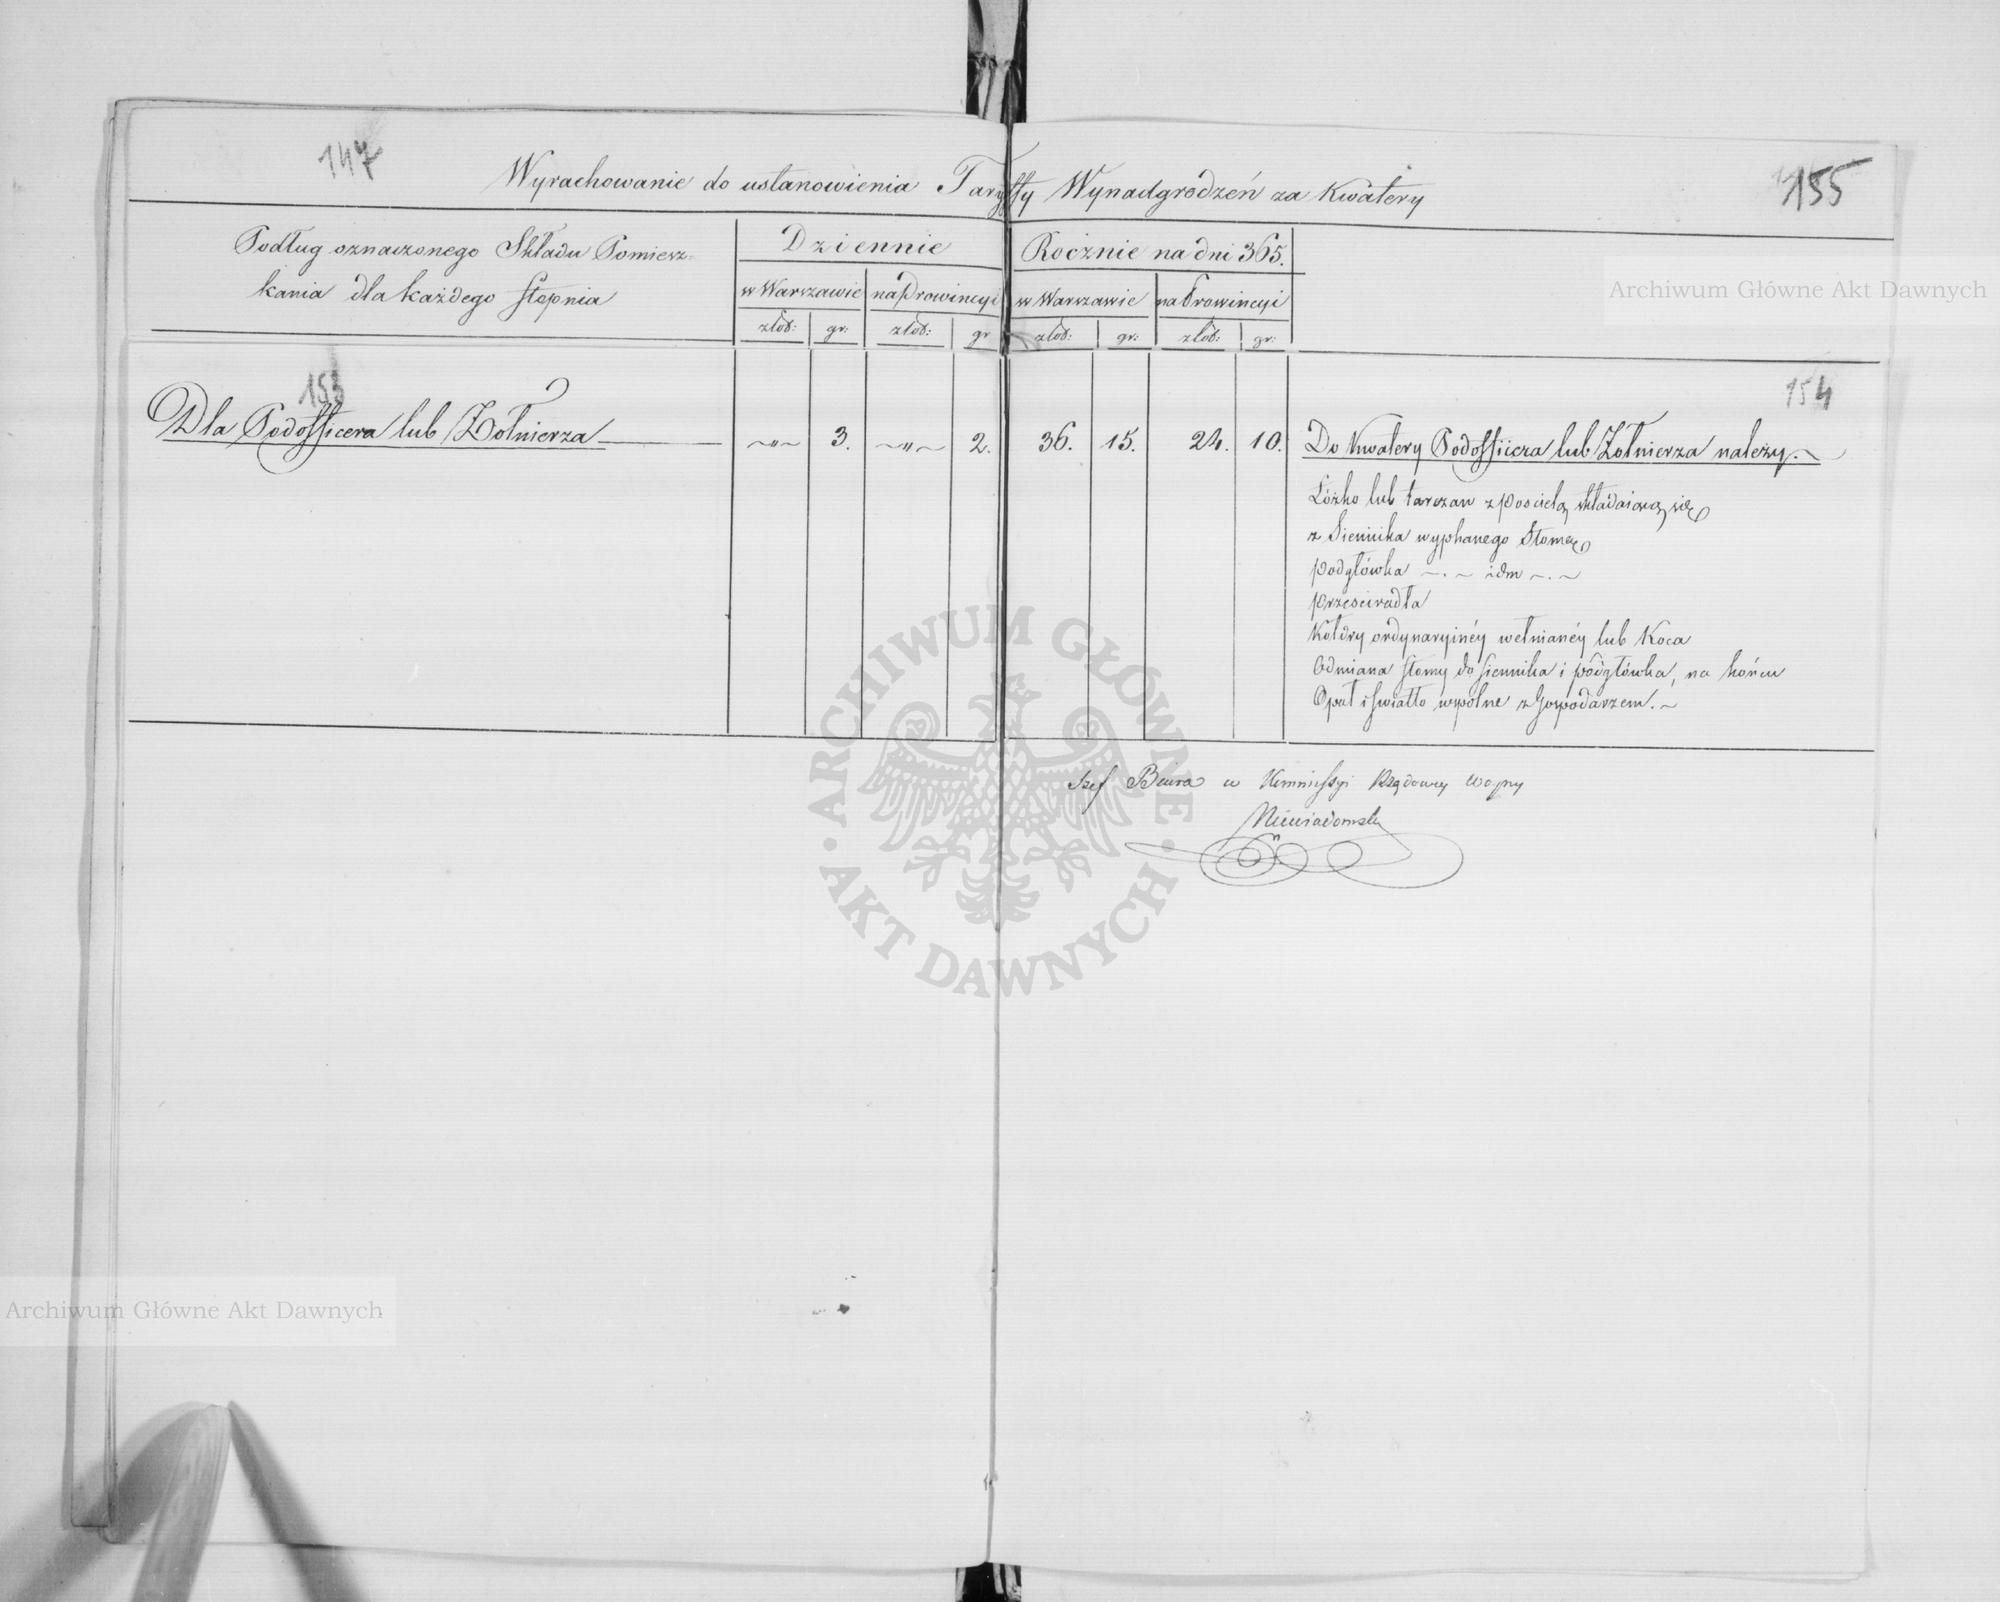 147
155
Wyrachowanie do ustanowienia Taryffy Wynadgrodzeń za Kwatery
Podług oznaczonego Składu Pomiesz=
kania dla każdego stopnia
Dziennie
Rocznie na dni 365.
w Warszawie
na Prowincyi
w Warszawie
na Prowincyi
złod:
gr:
złod:
gr
złod:
gr:
złod:
gr:
153
154
Dla Podofficera lub Żołnierza
~"~ 3. ~"~ 2. 36. 15. 24. 10.
Do Kwatery Podofficera lub Żołnierza należy.
Łóżko lub tarczan z pościelą składaiącą się
z Siennika wypchanego Słomą
podgłówka ~.~ idm ~.~
prześcieradła
Kołdry ordynaryinéy wełnianéy lub Koca
Odmiana słomy do siennika i podgłówka, na końcu
Opał i światło wspólne z Gospodarzem.~
Szef Biura w Kommissyi Rządowey Woyny
Niewiadomski
Archiwum Główne Akt Dawnych
Archiwum Główne Akt Dawnych
ARCHIWUM GŁÓWNE
AKT DAWNYCH